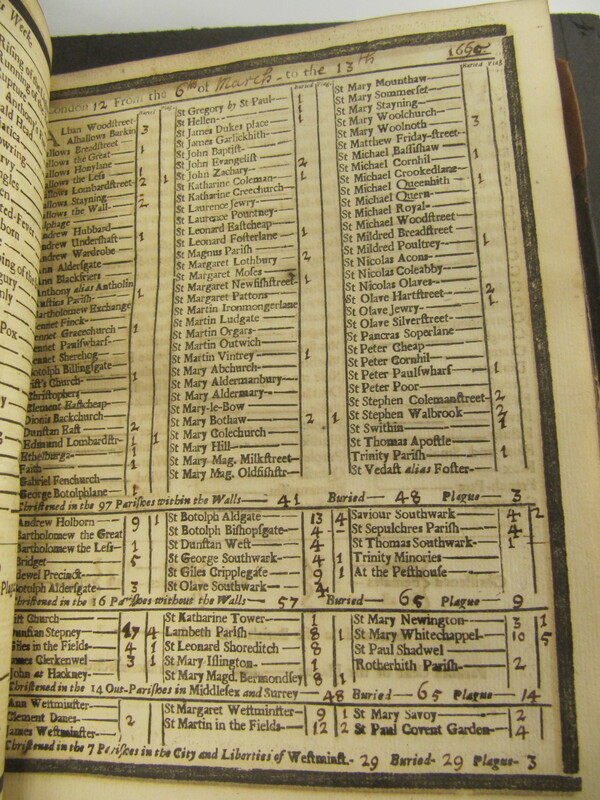 London 12 From the 6th of March - to the 13th 1660
Buried Plag.
Alban Woodstreet-
Alhallows Barkin 3
Allows Breadstreet
Allows the Great 1
Allows Honylane
Allows the Less 1
Allows Lombardstreet 2 1
Allows Stayning
Allows the Wall 2
Alphage
Andrew Hubbard
Andrew Undershaft 1
Andrew Wardrobe
Ann Aldersgate
Ann Blackfriers
Anthony alias Antholin
Austins Parish 1
Bartholomew Exchange
Bennet Finck
Bennet Gracechurch 1
Bennet Paulswharf
Bennet Sherehog
Botolph Billingsgate
Christ's Church 1
Christophers
Clement Eastcheap
Dionis Backchurch
Dunstan East 2
Edmund Lombardstr- 1 1
Ethelburga
Faith 1
Gabriel Fenchurch
George Botolphlane 1
St Gregory by St Paul 1
St Hellen 1
St James Dukes place 1
St James Garlickhith
St John Baptist
St John Evangelist 2
St John Zachary
St Katharine Coleman 1
St Katharine Creechurch
St Laurence Jewry
St Laurence Pountney
St Leonard Eastcheap
St Leonard Fosterlane 1
St Magnus Parish
St Margaret Lothbury 2
St Margaret Moses
St Margaret Newfishstreet 1
St Margaret Pattons
St Martin Ironmongerlane
St Martin Ludgate
St Martin Orgars
St Martin Outwich
St Martin Vintrey 1
St Mary Abchurch
St Mary Aldermanbury
St Mary Aldermary
St Mary-le-Bow
St Mary Bothaw 2 1
St Mary Colechurch
St Mary Hill
St Mary Mag. Milkstreet
St Mary Mag. Oldfishstr
St Mary Mounthaw
St Mary Sommerset
St Mary Stayning
St Mary Woolchurch
St Mary Woolnoth 3
St Matthew Friday-street
St Michael Bassishaw
St Michael Cornhil 1
St Michael Crookedlane
St Michael Queenhith 1
St Michael Quern
St Michael Royal
St Michael Woodstreet
St Mildred Breadstreet
St Mildred Poultrey 1
St Nicolas Acons
St Nicolas Coleabby
St Nicolas Olaves
St Olave Hartstreet 2
St Olave Jewry 1
St Olave Silverstreet
St Pancras Soperlane
St Peter Cheap
St Peter Cornhil
St Peter Paulswharf 1
St Peter Poor
St Stephen Colemanstreet- 2
St Stephen Walbrook 2
St Swithin 1
St Thomas Apostle
Trinity Parish 1
St Vedast alias Foster
Christened in the 97 Parishes within the Walls 41 Buried 48 Plague 3
Andrew Holborn 9 1
Bartholomew the Great
Bartholomew the Less 1
Bridget 5
Bridewel Precinct
Botolph Aldersgate 3
St Botolph Aldgate 13 4
St Botolph Bishopsgate 4
St Dunstan West 4
St George Southwark 4 1
St Giles Cripplegate 9 1
St Olave Southwark 4
Saviour Southwark 4 2
St Sepulchres Parish 4
St Thomas Southwark 1
Trinity Minories
At the Pesthouse
Christened in the 16 Parishes without the Walls 57 Buried 65 Plague 9
Christ Church
Dunstan Stepney 17 4
Giles in the Fields 4 1
James Clerkenwel 3 1
John at Hackney
St Katharine Tower 1
Lambeth Parish 8 1
St Leonard Shoreditch 8
St Mary Islington 1
St Mary Magd. Bermondsey 8 1
St Mary Newington 3 1
St Mary Whitechappel 10 5
St Paul Shadwel
Rotherhith Parish 2
Christened in the 14 Out-Parishes in Middlesex and Surrey 48 Buried 65 Plague 14
Ann Westminster
Clement Danes 2
James Westminster
St Margaret Westminster 9 1
St Martin in the Fields 12 2
St Mary Savoy 2
St Paul Covent Garden 4
Christened in the 7 Parishes in the City and Liberties of Westminst. 29 Buried 29 Plague 3